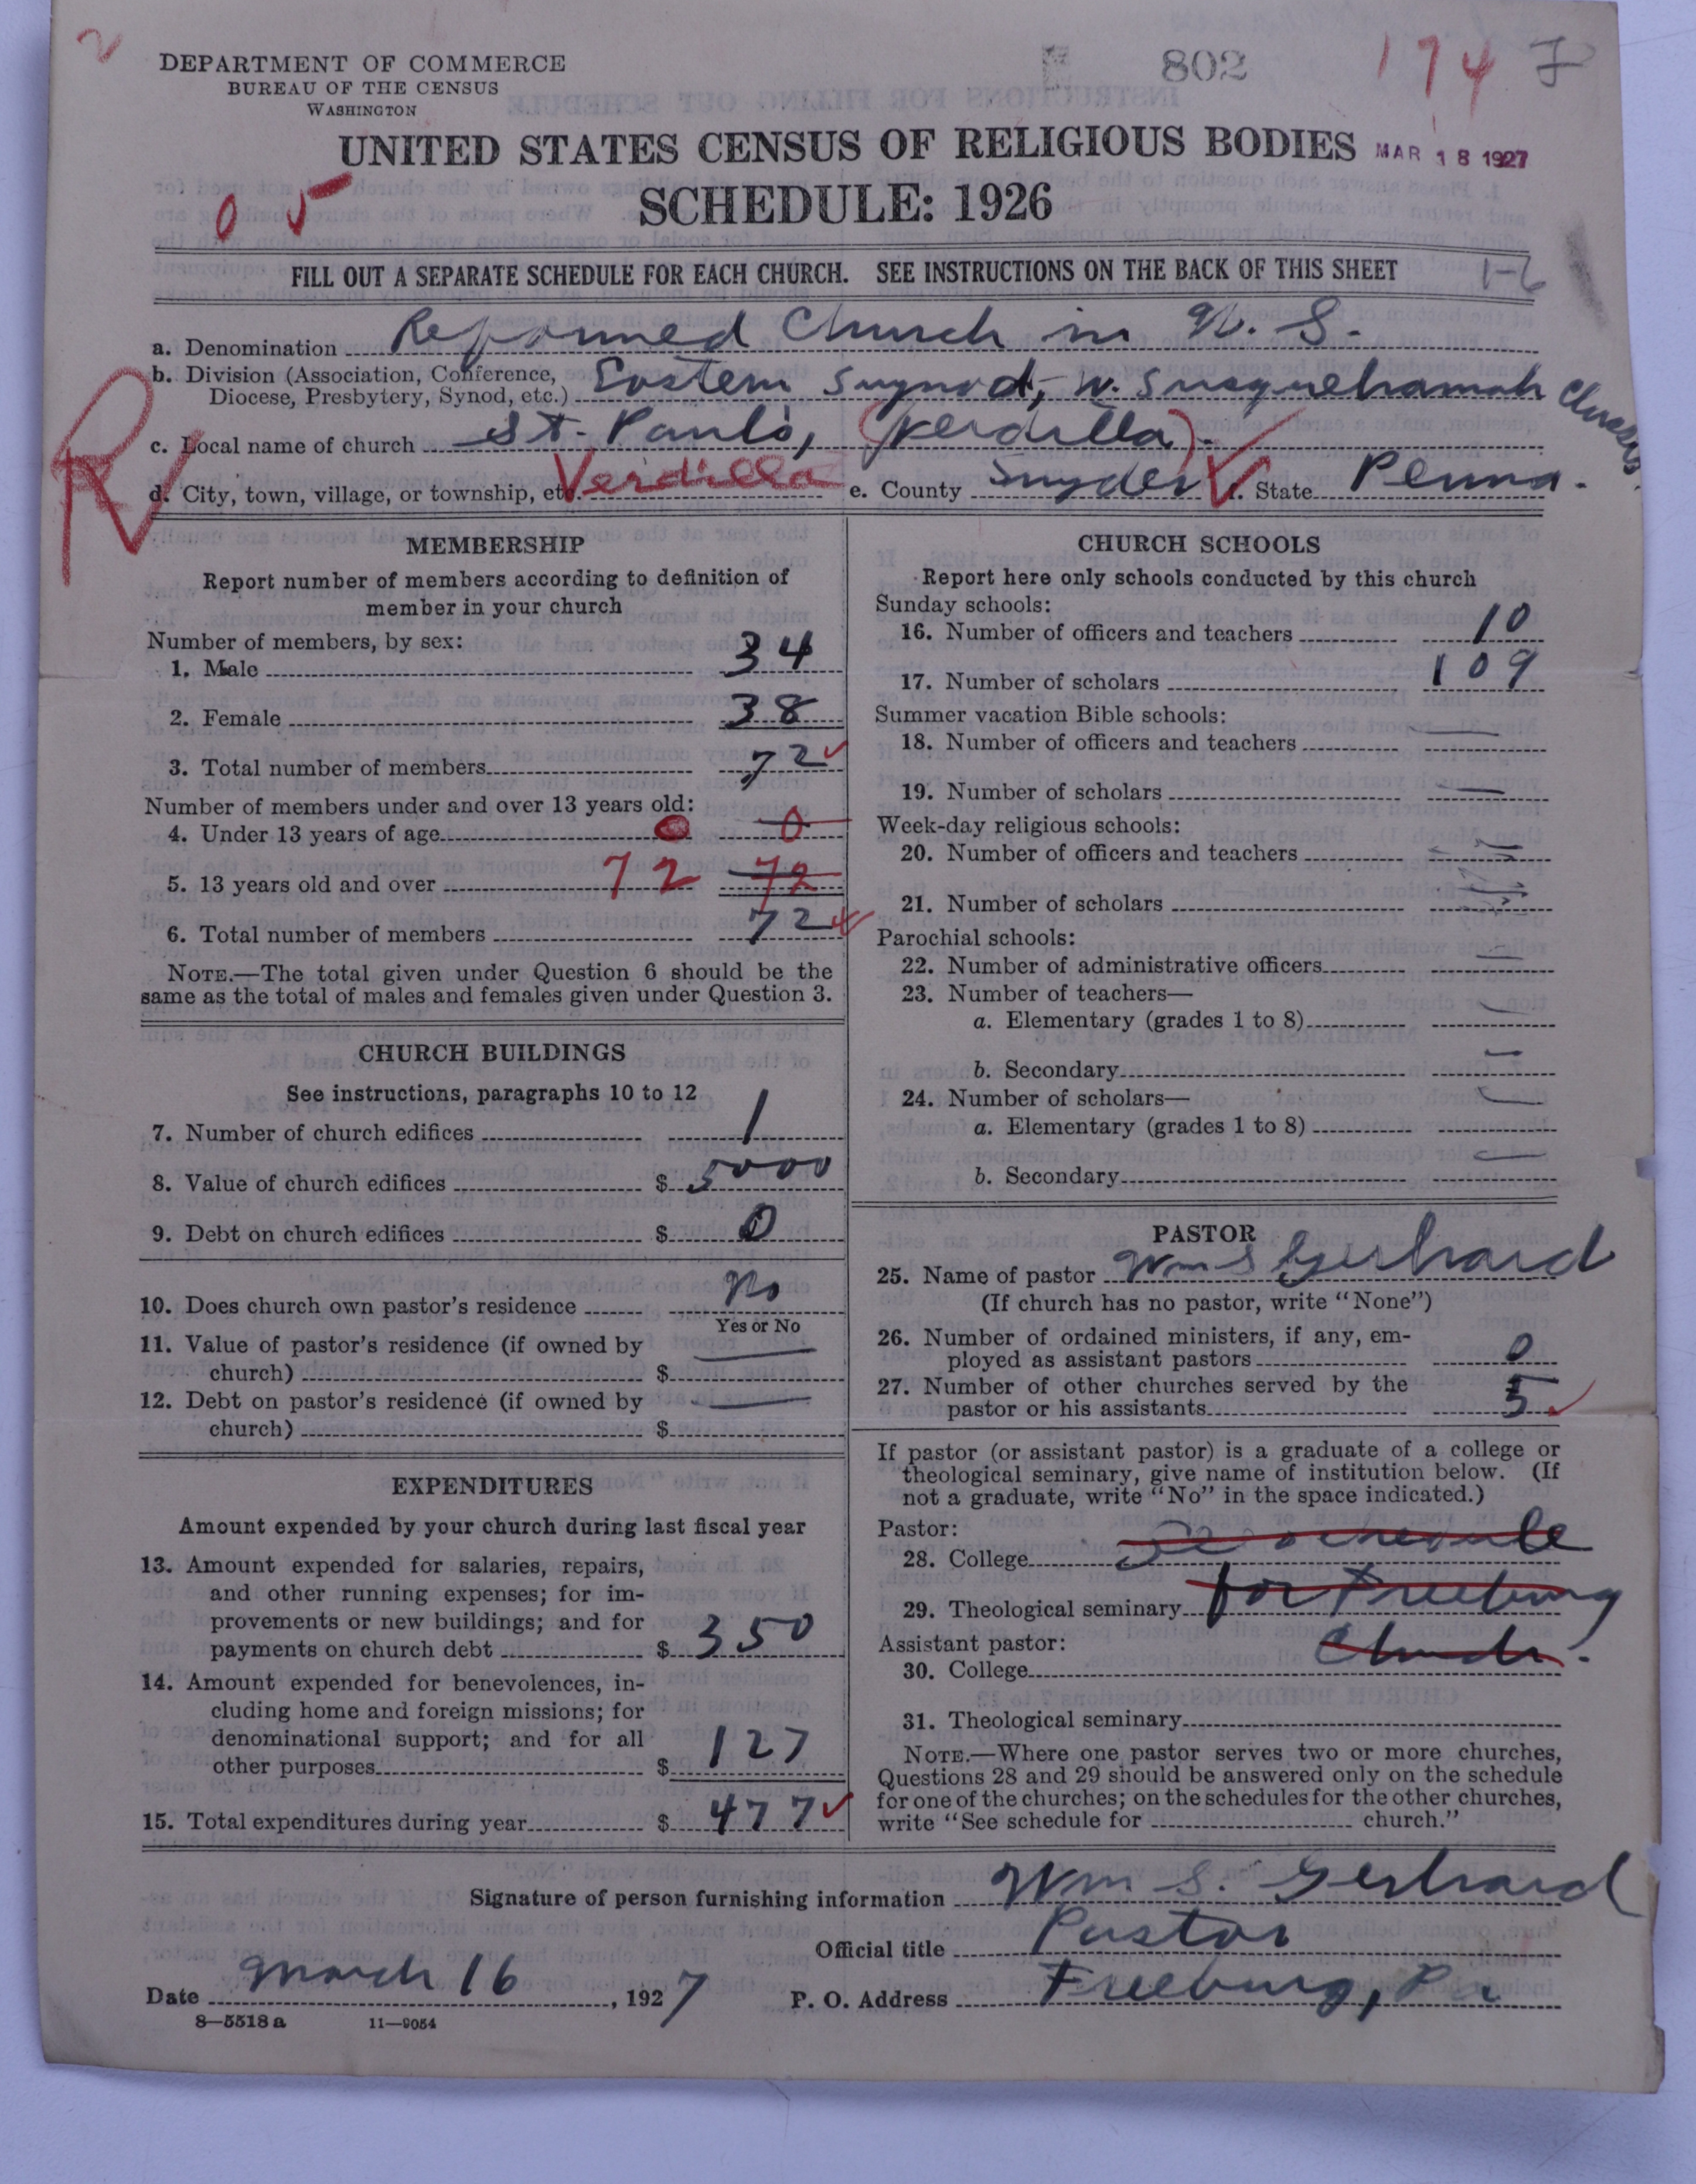 2
DEPARTMENT OF COMMERCE
BUREAU OF THE CENSUS
WASHINGTON
802
174 J
UNITED STATES CENSUS OF RELIGIOUS BODIES
MAR 18 1927
05
SCHEDULE: 1926
FILL OUT A SEPARATE SCHEDULE FOR EACH CHURCH. SEE INSTRUCTIONS ON THE BACK OF THIS SHEET
1-6
a. Denomination Reformed Church in U. S.
b. Division (Association, Conference, Diocese, Presbytery, Synod, etc.) Eastern Synod, W. Susquehannah Classis
c. Local name of church St. Paul's, (Verdilla).
R
d. City, town, village, or township, etc. Verdilla e. County Snyder f. State Penna.
MEMBERSHIP
Report number of members according to definition of
member in your church
Number of members, by sex:
1. Male 34
2. Female 38
3. Total number of members 72
Number of members under and over 13 years old:
4. Under 13 years of age 0 0
5. 13 years old and over 72 72
6. Total number of members 72
NOTE.—The total given under Question 6 should be the
same as the total of males and females given under Question 3.
CHURCH BUILDINGS
See instructions, paragraphs 10 to 12
7. Number of church edifices 1
8. Value of church edifices $ 5000
9. Debt on church edifices $ 0
10. Does church own pastor's residence No
Yes or No
11. Value of pastor's residence (if owned by
church) $ —
12. Debt on pastor's residence (if owned by
church) $ —
EXPENDITURES
Amount expended by your church during last fiscal year
13. Amount expended for salaries, repairs,
and other running expenses; for im-
provements or new buildings; and for
payments on church debt $ 350
14. Amount expended for benevolences, in-
cluding home and foreign missions; for
denominational support; and for all
other purposes $ 127
15. Total expenditures during year $ 477
CHURCH SCHOOLS
Report here only schools conducted by this church
Sunday schools:
16. Number of officers and teachers 10
17. Number of scholars 109
Summer vacation Bible schools:
18. Number of officers and teachers —
19. Number of scholars —
Week-day religious schools:
20. Number of officers and teachers —
21. Number of scholars —
Parochial schools:
22. Number of administrative officers —
23. Number of teachers—
a. Elementary (grades 1 to 8) —
b. Secondary —
24. Number of scholars—
a. Elementary (grades 1 to 8) —
b. Secondary —
PASTOR
25. Name of pastor Wm S Gerhard
(If church has no pastor, write "None")
26. Number of ordained ministers, if any, em-
ployed as assistant pastors 0
27. Number of other churches served by the
pastor or his assistants 5
If pastor (or assistant pastor) is a graduate of a college or
theological seminary, give name of institution below. (If
not a graduate, write "No" in the space indicated.)
Pastor:
28. College Se schedule
29. Theological seminary for Freeburg
Assistant pastor:
30. College Church.
31. Theological seminary
NOTE.—Where one pastor serves two or more churches,
Questions 28 and 29 should be answered only on the schedule
for one of the churches; on the schedules for the other churches,
write "See schedule for church."
Signature of person furnishing information Wm S. Gerhard
Official title Pastor
Date March 16, 1927 P. O. Address Freeburg, Pa
8—5518 a 11—9054